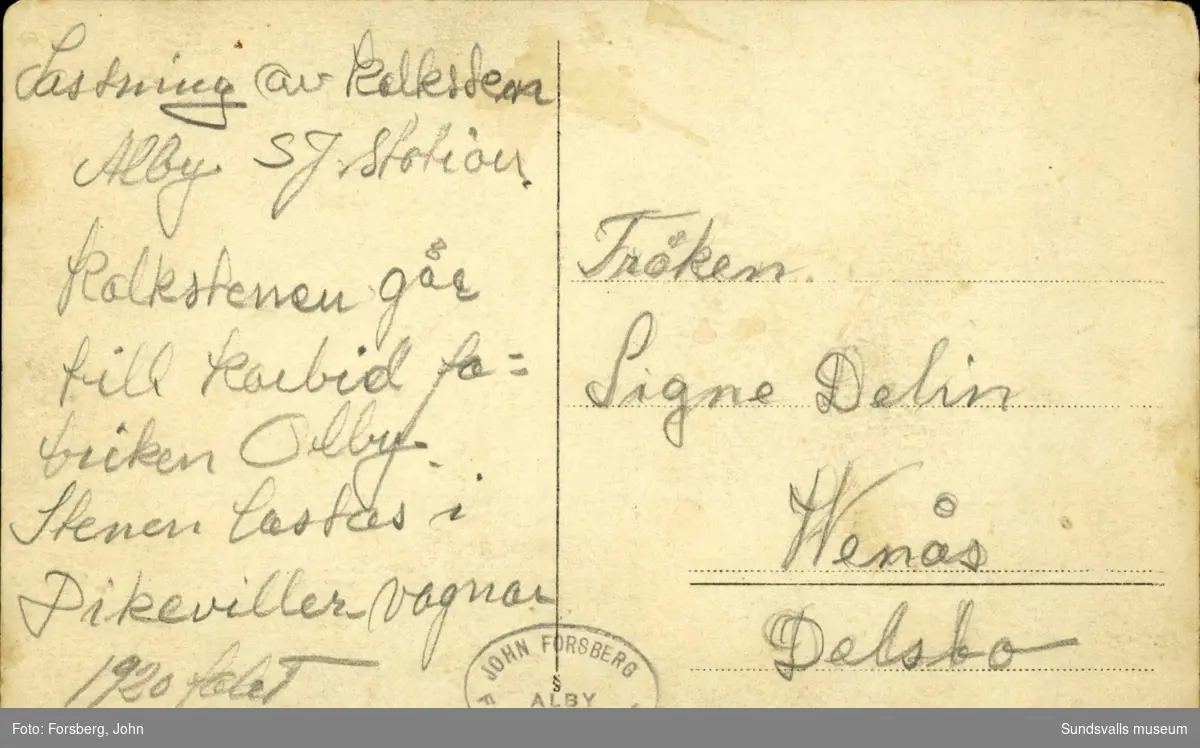 Lastning av kalksten
Alby SJ. Station.
Kalkstenen går
till karbid fa=
briken Alby.
Stenen lastas i
Dikeviller vagnar
1920 talet
Fröken
Signe Delin
Wenås
Delsbo
JOHN FORSBERG
F
ALBY
S
Foto: Forsberg, John
Sundsvalls museum